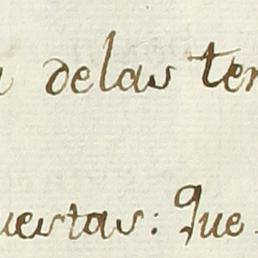 delas ter
uestas: Que